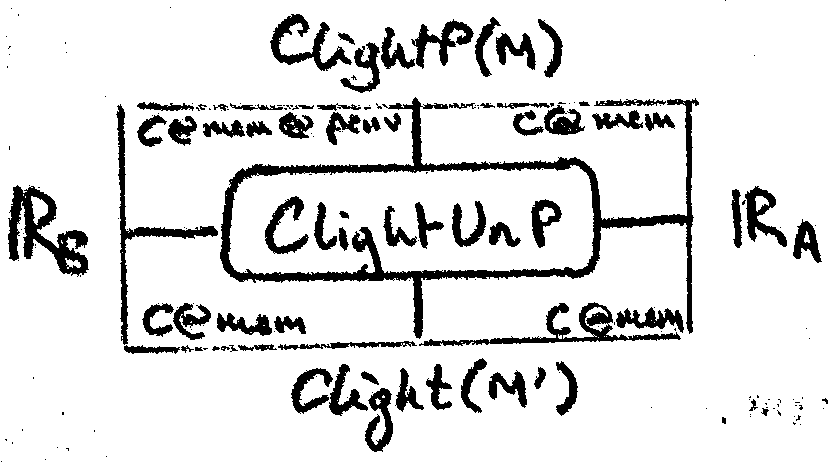 ClightP(M)
C@mem@penv C@mem
ClightUnP
ℝB ℝA
C@mem C@mem
Clight(M')